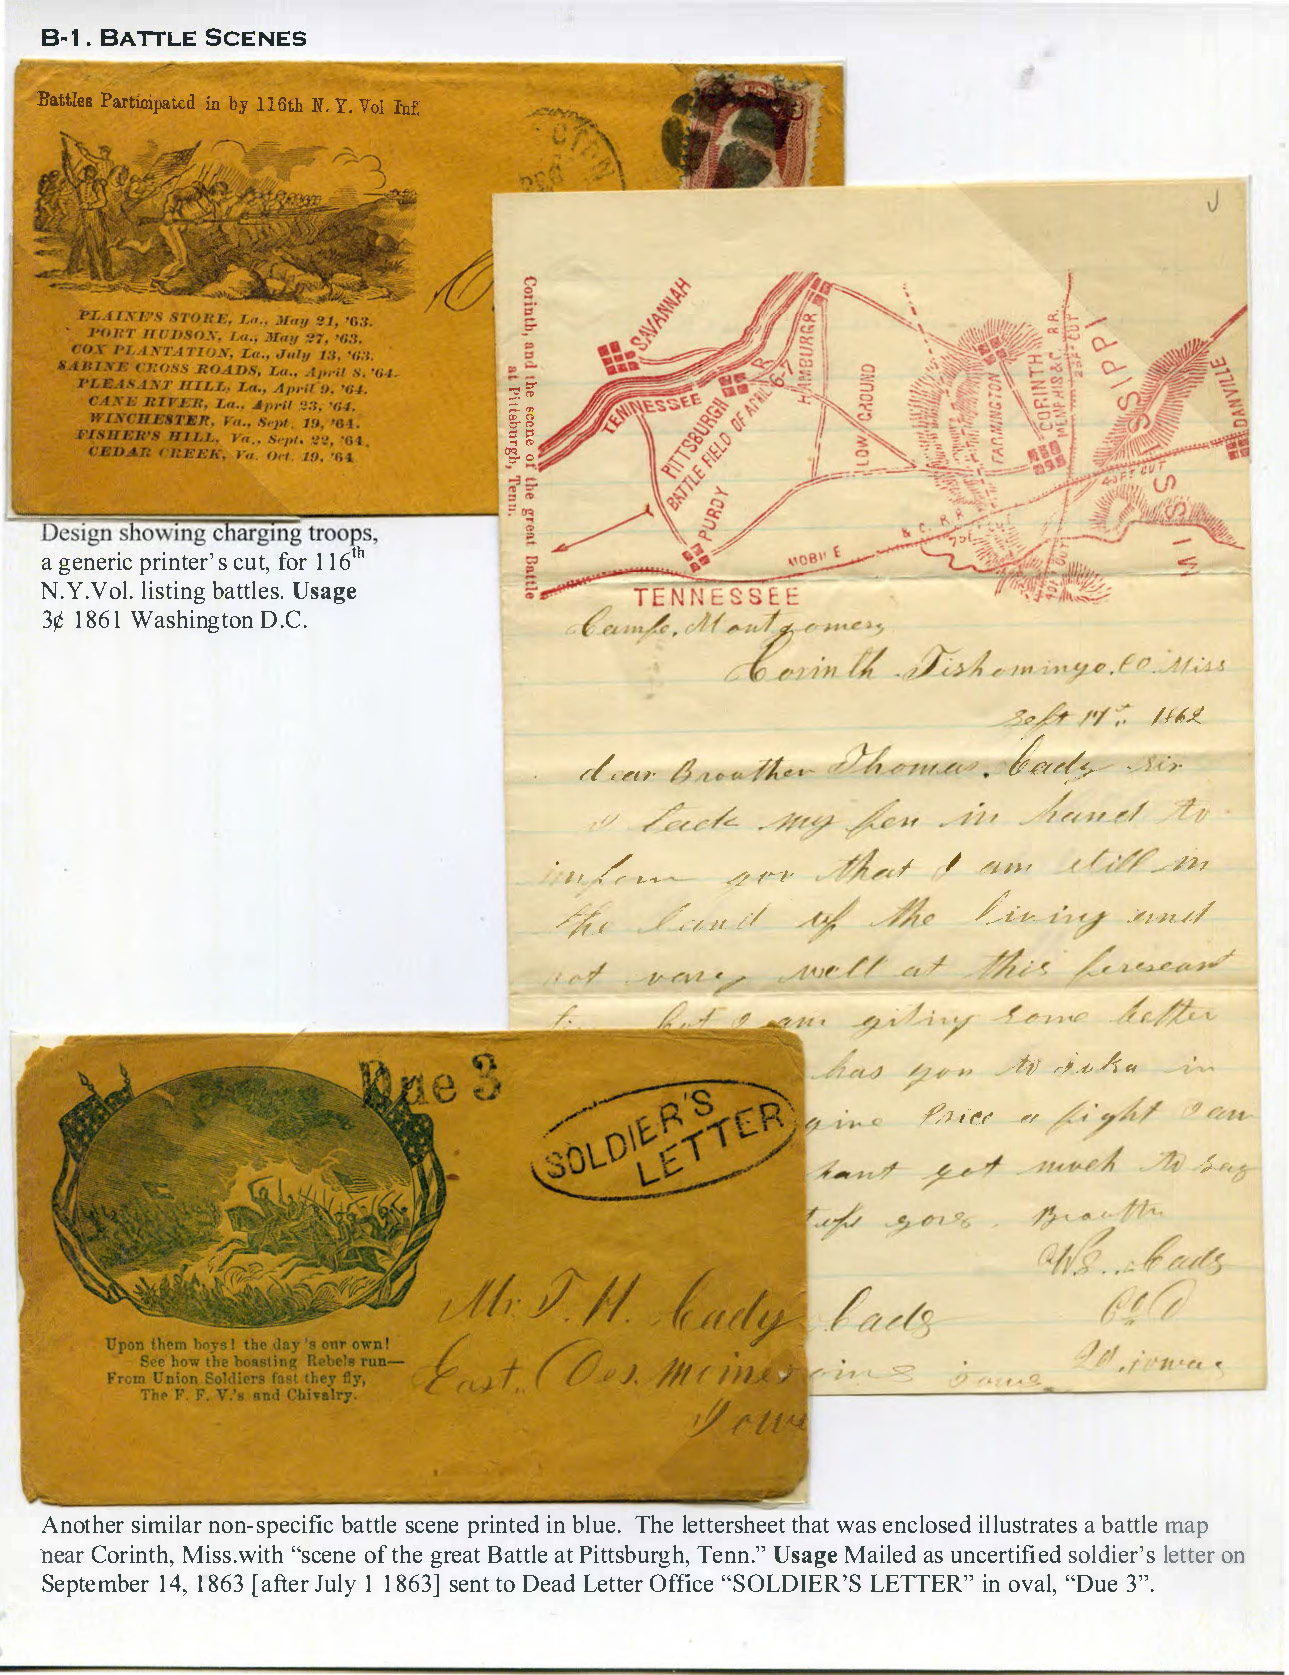 B-1. BATTLE SCENES
Battles Participated in by 116th N. Y. Vol Inf.
PLAINE'S STORE, La., May 21, '63.
PORT HUDSON, La., May 27, '63.
COX PLANTATION, La., July 13, '63.
SABINE CROSS ROADS, La., April 8, '64.
PLEASANT HILL, La., April 9, '64.
CANE RIVER, La., April 23, '64.
WINCHESTER, Va., Sept. 19, '64.
FISHER'S HILL, Va., Sept. 22, '64.
CEDAR CREEK, Va. Oct. 19, '64
Design showing charging troops,
a generic printer's cut, for 116th
N.Y.Vol. listing battles. Usage
3¢ 1861 Washington D.C.
Corinth, and the scene of the great Battle
at Pittsburgh, Tenn.
SAVANNAH
TENINESSEE R.
PITTSBURGH
BATTLE FIELD OF APRIL 6-7
HAMBURGR
PURDY
LOW GROUND
FARMINGTON
CORINTH
MEMPHIS & C. R.R.
25 FT CUT
MISSISSIPPI
DANVILLE
40 FT CUT
MOBILE & C. R.R.
TENNESSEE
Camp, Montgomery
Corinth. Tishomingo. CO. Miss
Sept 17th. 1862
dear Brouther Thomas. Cady sir
I tack my pen in hand to
inform you that I am still in
the land of the living and
not very well at this preseant
but I am giting some better
has gon to iuka in
give Price a fight I am
hant got much to say
yors. Brouther
WS. Cady
Co D
2d. iowa
Cady
Due 3
SOLDIER'S
LETTER
Upon them boys! the day's our own!
See how the boasting Rebels run—
From Union Soldiers fast they fly,
The F. F. V.'s and Chivalry.
Mr. T. H. Cady
East. Des. moines
Iowa
Another similar non-specific battle scene printed in blue. The lettersheet that was enclosed illustrates a battle map
near Corinth, Miss.with “scene of the great Battle at Pittsburgh, Tenn.” Usage Mailed as uncertified soldier's letter on
September 14, 1863 [after July 1 1863] sent to Dead Letter Office “SOLDIER'S LETTER” in oval, “Due 3”.